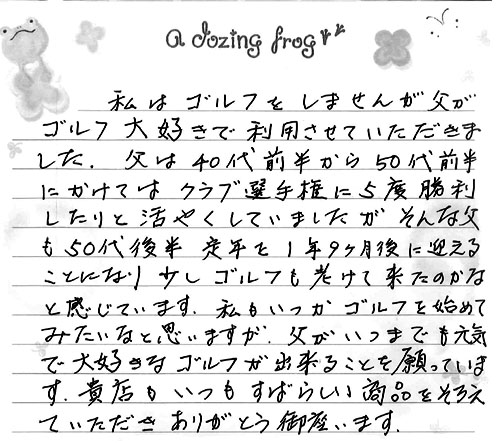 a dozing frog
私はゴルフをしませんが父が
ゴルフ大好きで利用させていただきま
した。父は40代前半から50代前半
にかけてはクラブ選手権に5度勝利
したりと活やくしていましたがそんな父
も50代後半定年を1年9ヶ月後に迎える
ことになり少しゴルフも老けて来たのかな
と感じています。私もいつかゴルフを始めて
みたいなと思いますが、父がいつまでも元気
で大好きなゴルフが出来ることを願っていま
す。貴店もいつもすばらしい商品をそろえ
ていただきありがとう御座います。